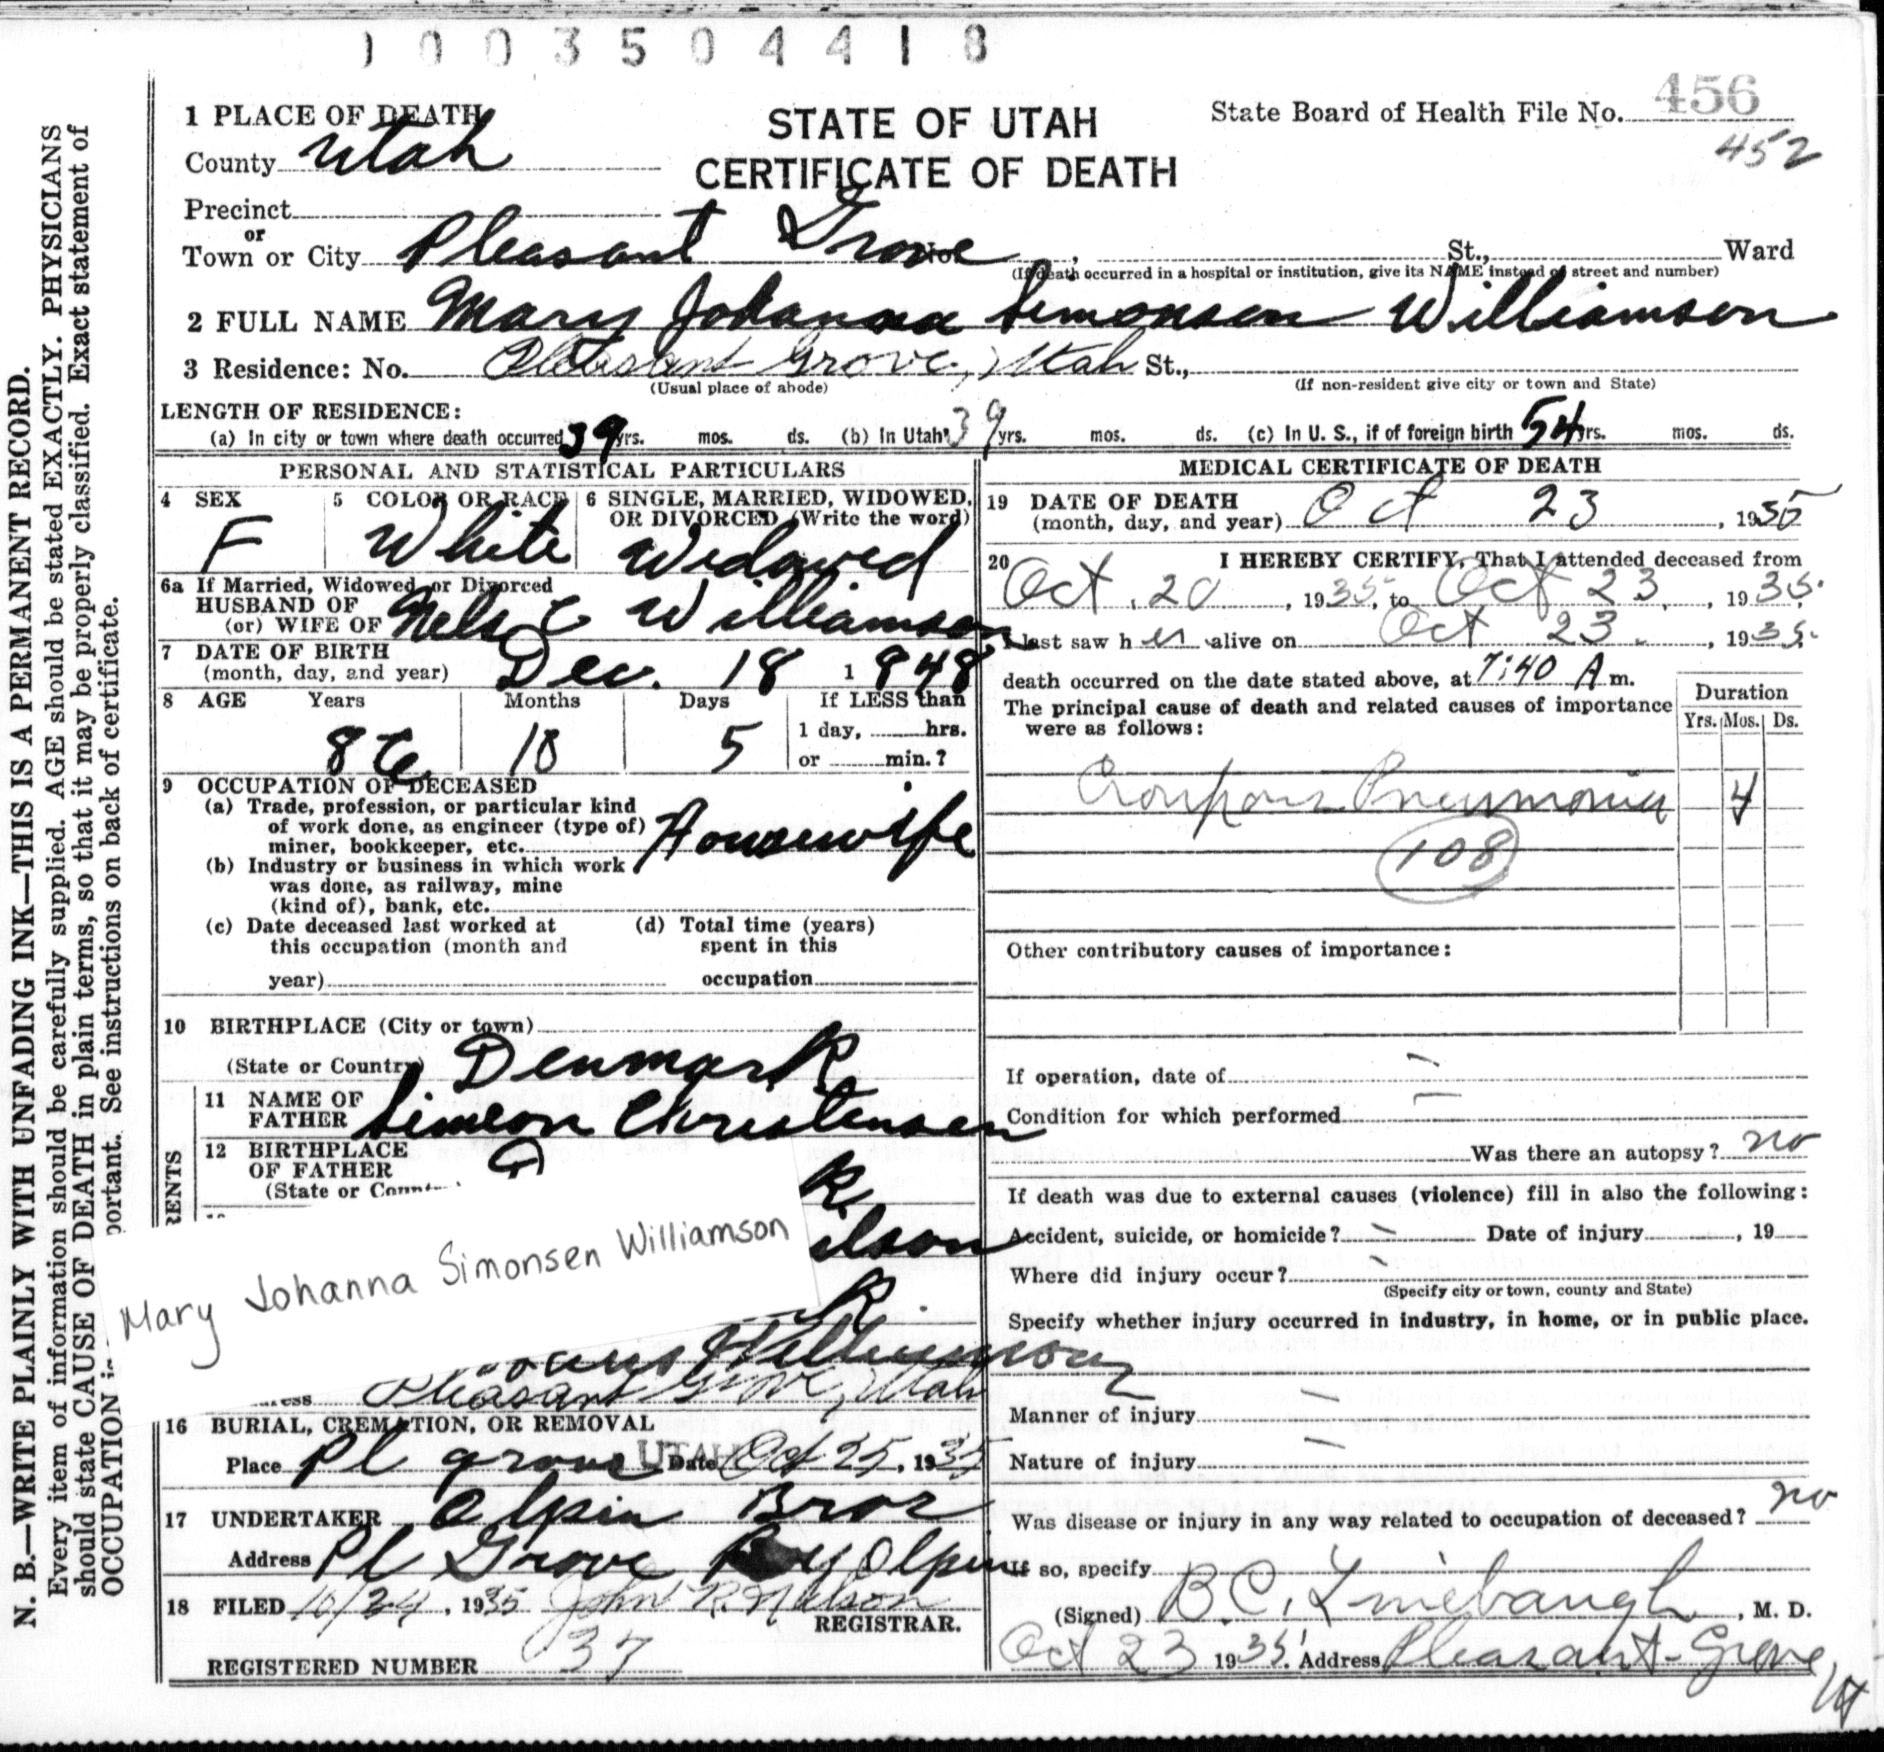 1003504418
1 PLACE OF DEATH
County Utah
STATE OF UTAH
CERTIFICATE OF DEATH
State Board of Health File No. 456
452
Precinct
or
Town or City Pleasant Grove No. , St., Ward
(If death occurred in a hospital or institution, give its NAME instead of street and number)
2 FULL NAME Mary Johanna Simonsen Williamson
3 Residence: No. Pleasant Grove, Utah St.,
(Usual place of abode) (If non-resident give city or town and State)
LENGTH OF RESIDENCE:
(a) In city or town where death occurred 39 yrs. mos. ds. (b) In Utah 39 yrs. mos. ds. (c) In U. S., if of foreign birth 54 yrs. mos. ds.
PERSONAL AND STATISTICAL PARTICULARS
4 SEX
F
5 COLOR OR RACE
White
6 SINGLE, MARRIED, WIDOWED,
OR DIVORCED (Write the word)
Widowed
6a If Married, Widowed or Divorced
HUSBAND OF
(or) WIFE OF Nels C Williamson
7 DATE OF BIRTH
(month, day, and year) Dec. 18 1848
8 AGE Years Months Days If LESS than
1 day, hrs.
or min.?
86 10 5
9 OCCUPATION OF DECEASED
(a) Trade, profession, or particular kind
of work done, as engineer (type of)
miner, bookkeeper, etc. Housewife
(b) Industry or business in which work
was done, as railway, mine
(kind of), bank, etc.
(c) Date deceased last worked at
this occupation (month and
year)
(d) Total time (years)
spent in this
occupation
10 BIRTHPLACE (City or town)
(State or Country) Denmark
11 NAME OF
FATHER Simeon Christensen
12 BIRTHPLACE
OF FATHER
(State or Coun
RENTS
Mary Johanna Simonsen Williamson
Williamson
Pleasant Grove, Utah
16 BURIAL, CREMATION, OR REMOVAL
Place Pl grove UTAH Date Oct 25, 1935
17 UNDERTAKER Olpin Bros
Address Pl Grove Roy Olpin
18 FILED 10/24, 1935 John P. Nelson
REGISTRAR.
REGISTERED NUMBER 37
MEDICAL CERTIFICATE OF DEATH
19 DATE OF DEATH
(month, day, and year) Oct 23, 1935
20 I HEREBY CERTIFY, That I attended deceased from
Oct. 20, 1935, to Oct 23, 1935.
I last saw her alive on Oct 23, 1935.
death occurred on the date stated above, at 7:40 A m.
The principal cause of death and related causes of importance
were as follows:
Duration
Yrs. Mos. Ds.
Croupous Pneumonia 4
108
Other contributory causes of importance:
If operation, date of –
Condition for which performed –
Was there an autopsy? no
If death was due to external causes (violence) fill in also the following:
Accident, suicide, or homicide? – Date of injury , 19
Where did injury occur? –
(Specify city or town, county and State)
Specify whether injury occurred in industry, in home, or in public place.
Manner of injury –
Nature of injury –
Was disease or injury in any way related to occupation of deceased? no
If so, specify
(Signed) B.C. Linebaugh, M. D.
Oct 23 1935. Address Pleasant Grove, Ut
N. B.—WRITE PLAINLY WITH UNFADING INK—THIS IS A PERMANENT RECORD.
Every item of information should be carefully supplied. AGE should be stated EXACTLY. PHYSICIANS
should state CAUSE OF DEATH in plain terms, so that it may be properly classified. Exact statement of
OCCUPATION is portant. See instructions on back of certificate.